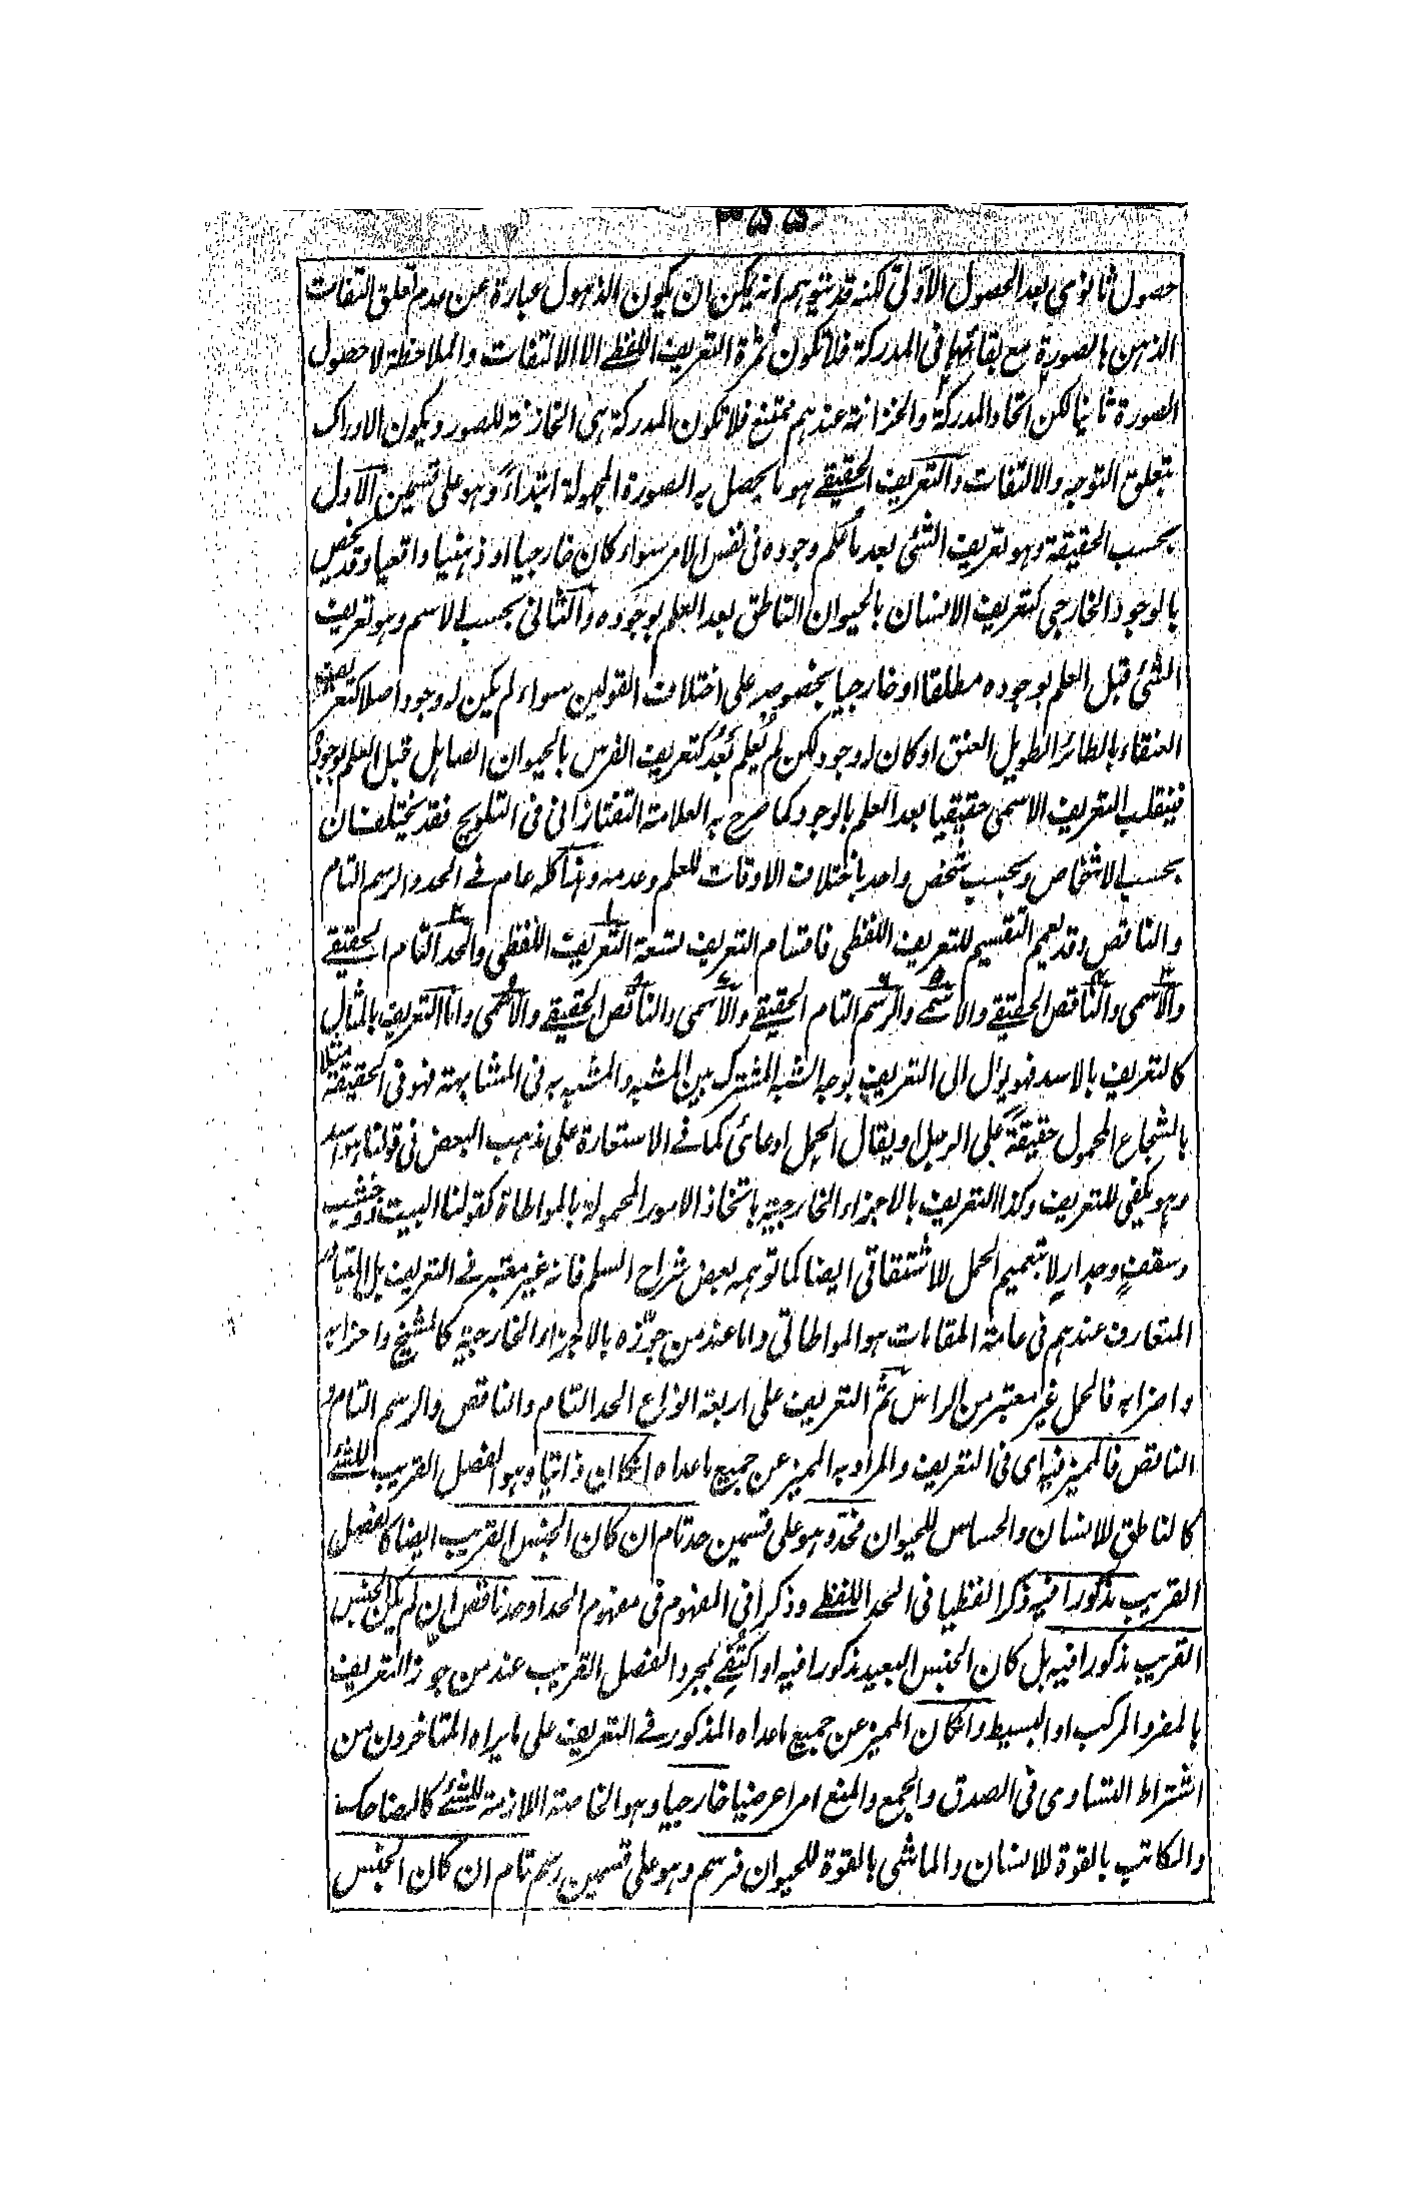 ٣٥٥
حصول ثانوى بعد الحصول الاولى لكنه قد يتوهم انه يمكن ان يكون الذهول عبارة عن عدم تعلق التفات
الذهن بالصورة مع بقائها فى المدركة فلا تكون ثمرة التعريف اللفظى الا الالتفات والملاحظة لا حصول
الصورة ثانيا لكن اتحاد المدركة والخزانة عندهم ممتنع فلا تكون المدركة هى الخازنة للصور ويكون الادراك
بتعلق التوجه والالتفات والتعريف الحقيقى هو ما يحصل به الصورة المجهولة ابتداءً وهو على قسمين الاول
بحسب الحقيقة وهو تعريف الشئ بعد ما علم وجوده فى نفس الامر سواء كان خارجيا او ذهنيا واقعيا وقد يخص
بالوجود الخارجى كتعريف الانسان بالحيوان الناطق بعد العلم بوجوده والثانى بحسب الاسم وهو تعريف
الشئ قبل العلم بوجوده مطلقا او خارجيا بخصوصه على اختلاف القولين سواء لم يكن له وجود اصلا كتعريف
العنقاء بالطائر الطويل العنق او كان له وجود لكن لم يُعلم بَعدُ كتعريف الفرس بالحيوان الصاهل قبل العلم بوجوده
فينقلب التعريف الاسمى حقيقيا بعد العلم بالوجود كما صرح به العلامة التفتازانى فى التلويح فقد يختلفان
بحسب الاشخاص وبحسب شخص واحد باختلاف الاوقات للعلم وعدمه وهذا كله عام فى الحد والرسم التام
والناقص وقد يعمم التقسيم للتعريف اللفظى فاقسام التعريف تسعة التعريف اللفظى والحد التام الحقيقى
والاسمى والناقص الحقيقى والاسمى والرسم التام الحقيقى والاسمى والناقص الحقيقى والاسمى واما التعريف بالمثال
كالتعريف بالاسد فهو يؤل الى التعريف بوجه الشبه المشترك بين المشبه والمشبه به فى المشابهة فهو فى الحقيقة مثلا
بالشجاع المحمول حقيقةً على الرجل او يقال الحمل ادعائى كما فى الاستعارة على مذهب البعض فى قولنا هو اسد
وهو يكفى للتعريف وكذا التعريف بالاجزاء الخارجية باتخاذ الامور المحمولة بالمواطاة كقولنا البيت ذو خشب
وسقفٍ وجدارٍ لا بتعميم الحمل للاشتقاقى ايضا كما توهمه بعض شراح السلم فانه غير معتبر فى التعريف بل المتبادر
المتعارف عندهم فى عامة المقامات هو المواطاتى واما عند من جوّزه بالاجزاء الخارجية كالشيخ واحزابه
واضرابه فالحمل غير معتبر من الراس ثم التعريف على اربعة انواع الحد التام والناقص والرسم التام و
الناقص فالمميز فيه اى فى التعريف والمراد به المميز عن جميع ما عداه ان كان ذاتيا وهو الفصل القريب للشئ
كالناطق للانسان والحساس للحيوان فحد وهو على قسمين حد تام ان كان الجنس القريب ايضا كالفصل
القريب مذكورا فيه ذكرا لفظيا فى الحد اللفظى وذكرا فى المفهوم فى مفهوم الحد او حد ناقص ان لم يكن الجنس
القريب مذكورا فيه بل كان الجنس البعيد مذكورا فيه او اكتُفِى بمجرد الفصل القريب عند من جوز التعريف
بالمفرد المركب او البسيط وان كان المميز عن جميع ما عداه المذكور فى التعريف على ما يراه المتاخرون من
اشتراط التساوى فى الصدق والجمع والمنع امرا عرضيا خارجيا وهو الخاصة اللازمة للشئ كالضاحك
والكاتب بالقوة للانسان والماشى بالقوة للحيوان فرسم وهو على قسمين رسم تام ان كان الجنس